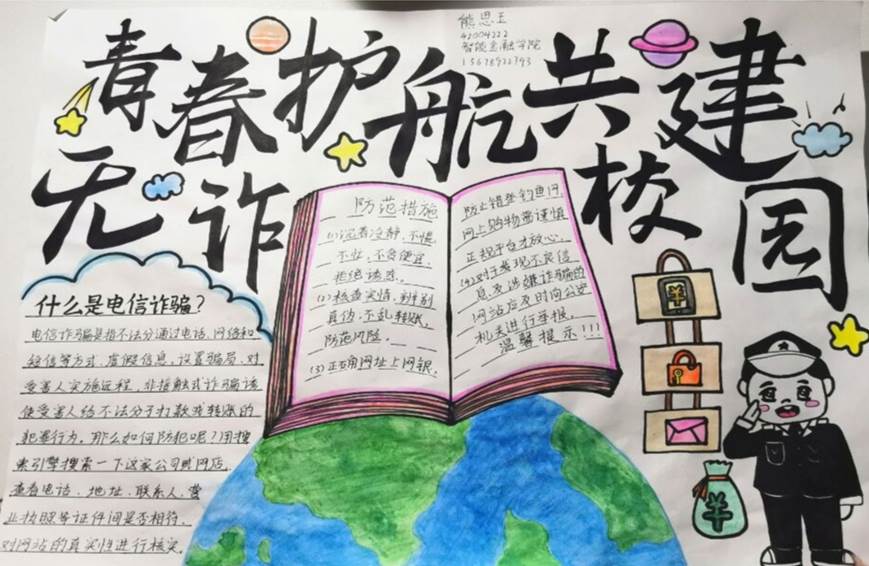 熊思王
42004222
智能金融学院
15678922793
青春护航共建
无诈校园
什么是电信诈骗?
电信诈骗是指不法分通过电话、网络和
短信等方式,虚假信息,设置骗局,对
受害人实施远程、非接触式诈骗诱
使受害人给不法分子打款或转账的
犯罪行为。那么如何防犯呢?用搜
索引擎搜索一下这家公司或网店,
查看电话、地址、联系人、营
业执照等证件间是否相符,
对网站的真实性进行核实。
防范措施
(1)沉着冷静,不慌
不忙,不贪便宜
拒绝诱惑。
(2)核查实情,辨别
真伪,不乱转账,
防范风险。
(3)正确网址上网银,
防止错登钓鱼网,
网上购物需谨慎
正规平台才放心。
(4)对于发现不良信
息及涉嫌诈骗的
网站应及时向公安
机关进行举报。
温馨提示!!!
¥
¥